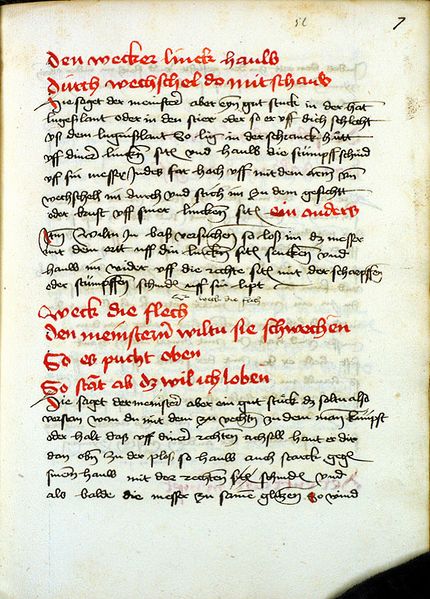 7
Den wecker linck hauw
Durch wechschel do mit schaw
Die saget der meinster aber eyn gut stuck in der hat
lugeslant oder in den stier oder so er vff dich schlecht
vß dem luginslant So lig in der schranck hutt
vff diner lincken sitt vnd hauw die stumpff schnid
vff sin messer Indes far hach vff mit dem ort vn
wechschell im durch vnd stich im zu dem gesichtt
oder brust vff siner lincken sitt ein anders
Itm Wiltu in baß versuchen so loß im dz messer
mit dem ortt vff din lincken sitt sencken vnd
hauw im wider vff die rechte sitt mit der schorpffen
oder stumpffen schnid vff sin kopf
weck die flech
Weck die flech
Den meinstern wiltu sie schwechen
So es pucht oben
So stat ab dz wil ich loben
Die saget der meinster aber ein gut stuck dz soltu also
versten wen du mit dem zu vechten zu dem man kumpst
oder halt daß vff diner rechten achsell haut er dir
dan obn zu der ploß so hauw auch starck gegn
sinem hauw mit der rechten schnid vnd
als balde die messer zu same glitzen So wind